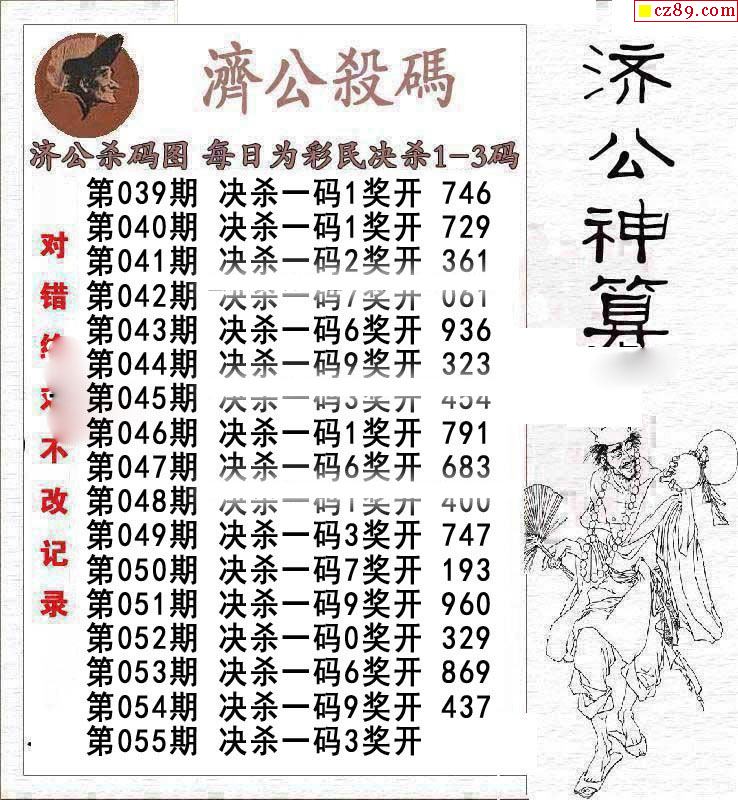 cz89.com
濟公殺碼
济公杀码图 每日为彩民决杀1-3码
第039期 决杀一码1奖开 746
第040期 决杀一码1奖开 729
第041期 决杀一码2奖开 361
第042期 决杀一码7奖开 061
第043期 决杀一码6奖开 936
第044期 决杀一码9奖开 323
第045期 决杀一码3奖开 454
第046期 决杀一码1奖开 791
第047期 决杀一码6奖开 683
第048期 决杀一码1奖开 400
第049期 决杀一码3奖开 747
第050期 决杀一码7奖开 193
第051期 决杀一码9奖开 960
第052期 决杀一码0奖开 329
第053期 决杀一码6奖开 869
第054期 决杀一码9奖开 437
第055期 决杀一码3奖开
对错不改记录
济公神算